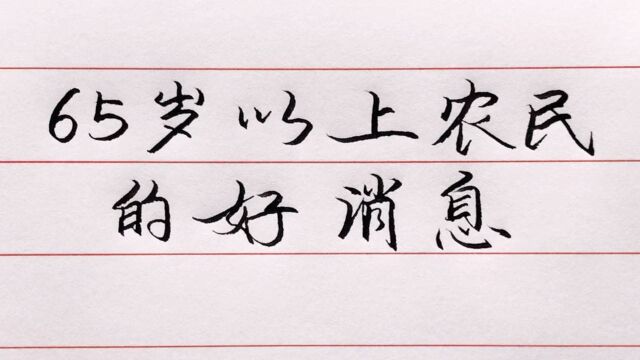 65岁以上农民
的好消息